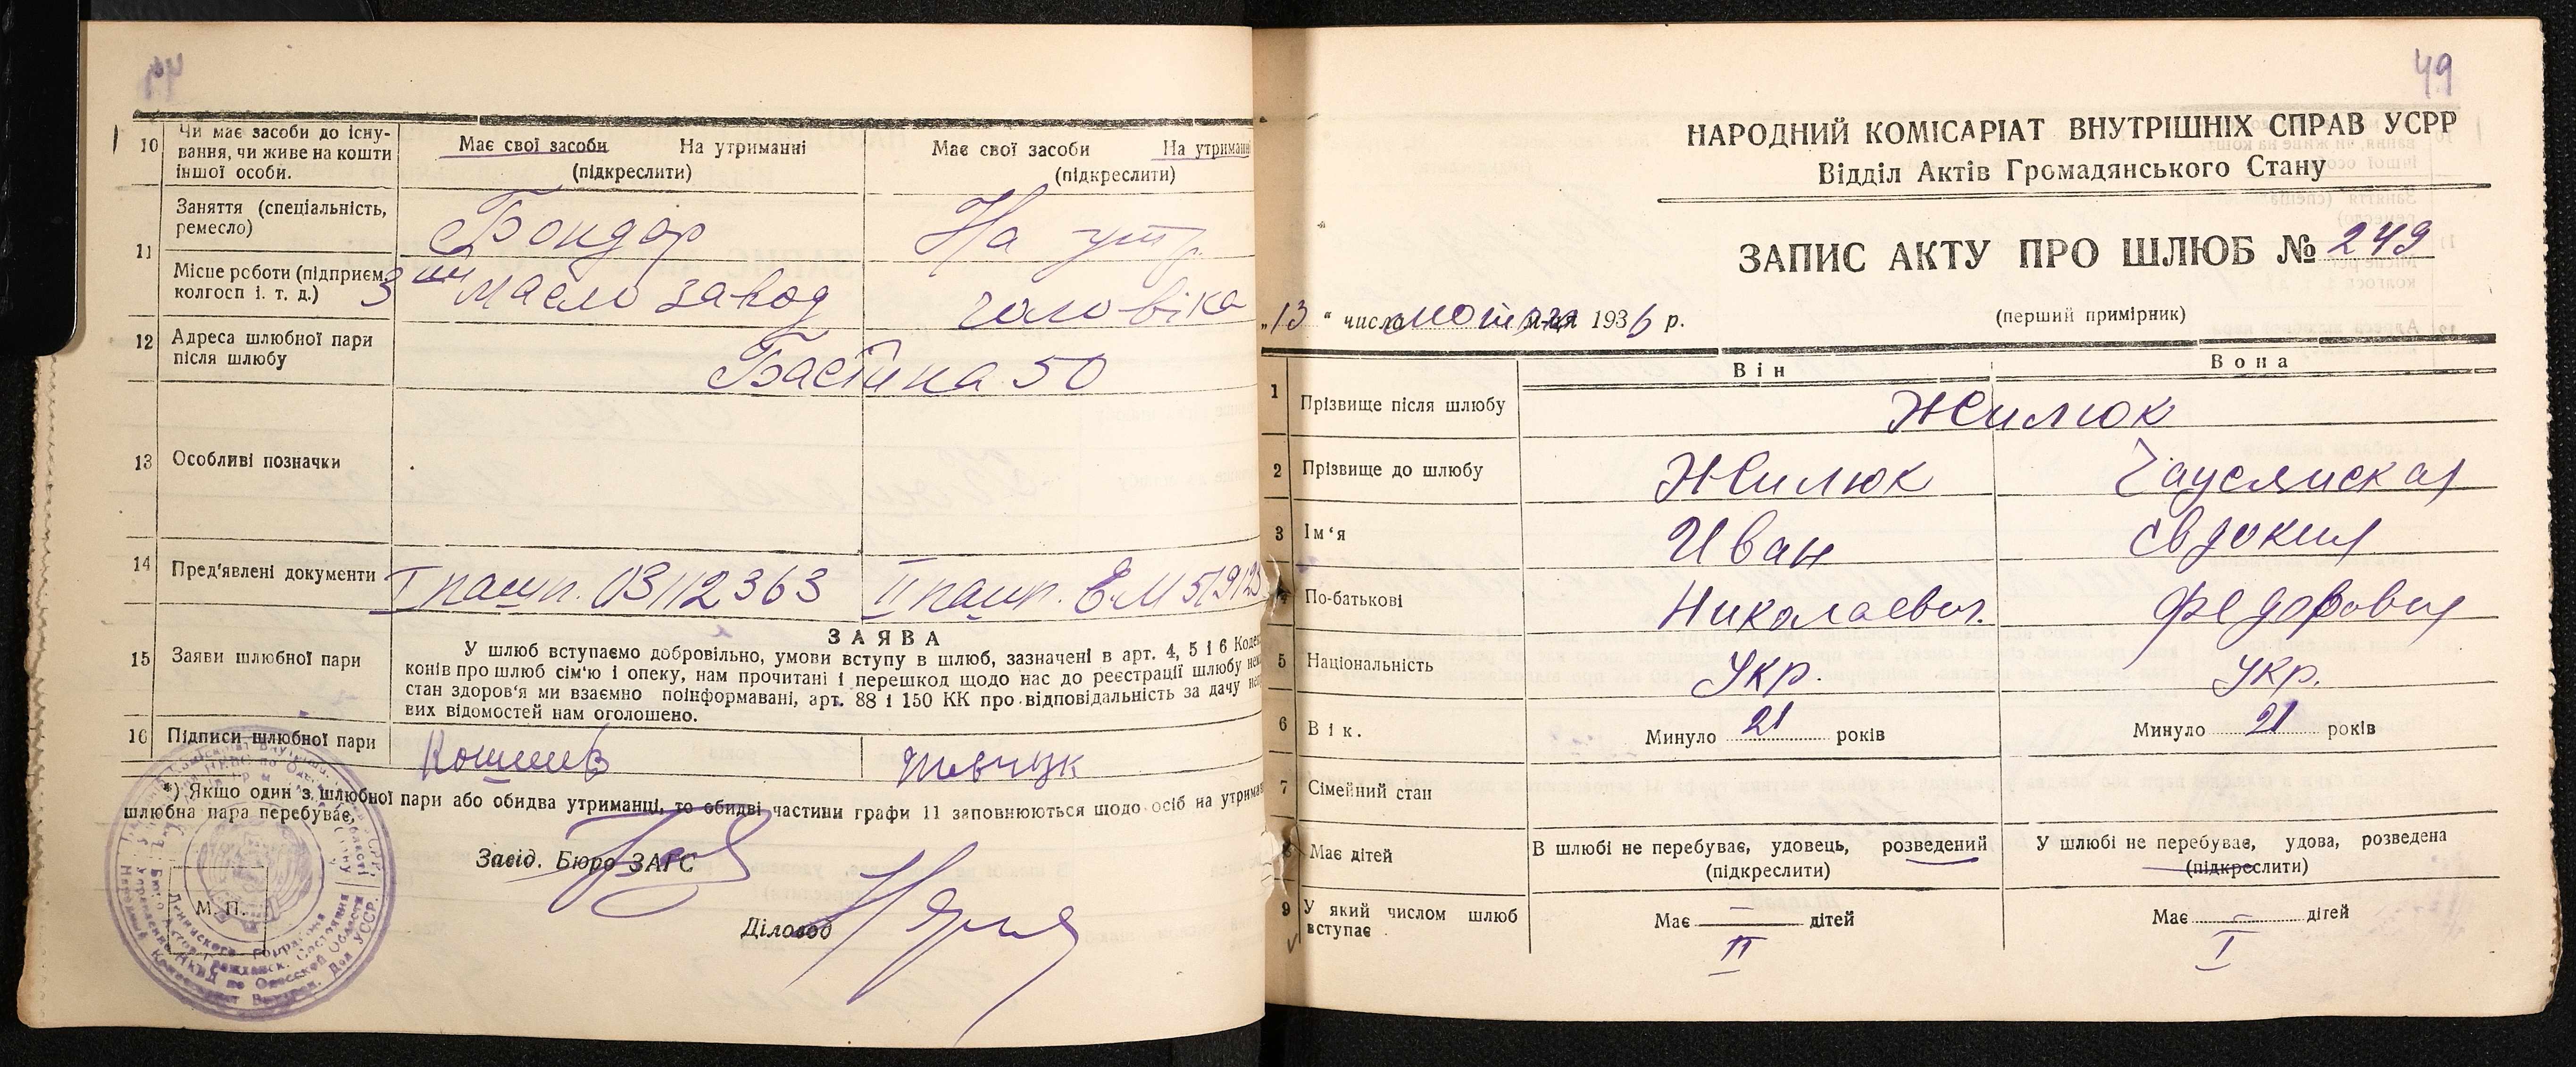 49
10 Чи має засоби до існу-
вання, чи живе на кошти
іншої особи.
Має свої засоби На утриманні
(підкреслити)
Має свої засоби На утриманні
(підкреслити)
11 Заняття (спеціальність,
ремесло)
Бондар
На утр.
Місце роботи (підприєм.
колгосп і. т. д.)
Масло завод
чоловіка
12 Адреса шлюбної пари
після шлюбу
50
13 Особливі позначки
14 Пред'явлені документи
I пашп. 03112363
II пашп.
ЗАЯВА
15 Заяви шлюбної пари
У шлюб вступаємо добровільно, умови вступу в шлюб, зазначені в арт. 4, 5 і 6 Кодек
конів про шлюб сім'ю і опеку, нам прочитані і перешкод щодо нас до реєстрації шлюбу
стан здоров'я ми взаємно поінформавані, арт. 88 і 150 КК про відповідальність за дачу
вих відомостей нам оголошено.
16 Підписи шлюбної пари
*) Якщо один з шлюбної пари або обидва утриманці, то обидві частини графи 11 заповнюються щодо осіб на утриман
шлюбна пара перебуває,
Завід. Бюро ЗАГС
М. П.
Діловод
49
НАРОДНИЙ КОМІСАРІАТ ВНУТРІШНІХ СПРАВ УСРР
Відділ Актів Громадянського Стану
ЗАПИС АКТУ ПРО ШЛЮБ № 249
„13“ число м-ця 1936 р.
(перший примірник)
Він Вона
1 Прізвище після шлюбу
Жилюк
2 Прізвище до шлюбу
Жилюк
3 Ім'я
Иван
Евдокия
4 По-батькові
Николаевич.
Федоровна
5 Національність
Укр.
Укр.
6 Вік.
Минуло 21 років
Минуло 21 років
7 Сімейний стан
8 Має дітей
В шлюбі не перебуває, удовець, розведений
(підкреслити)
У шлюбі не перебуває, удова, розведена
(підкреслити)
9 У який числом шлюб
вступає
Має — дітей
Має — дітей
II
I